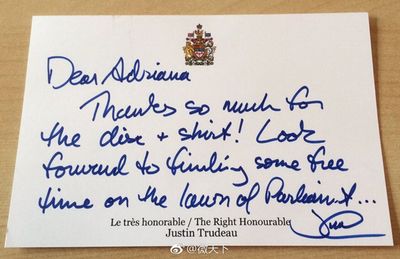 Dear Adriana
Thanks so much for
the disc + shirt! Look
forward to finding some free
time on the lawn of Parliam't...
Le très honorable / The Right Honourable
Justin Trudeau
@微天下